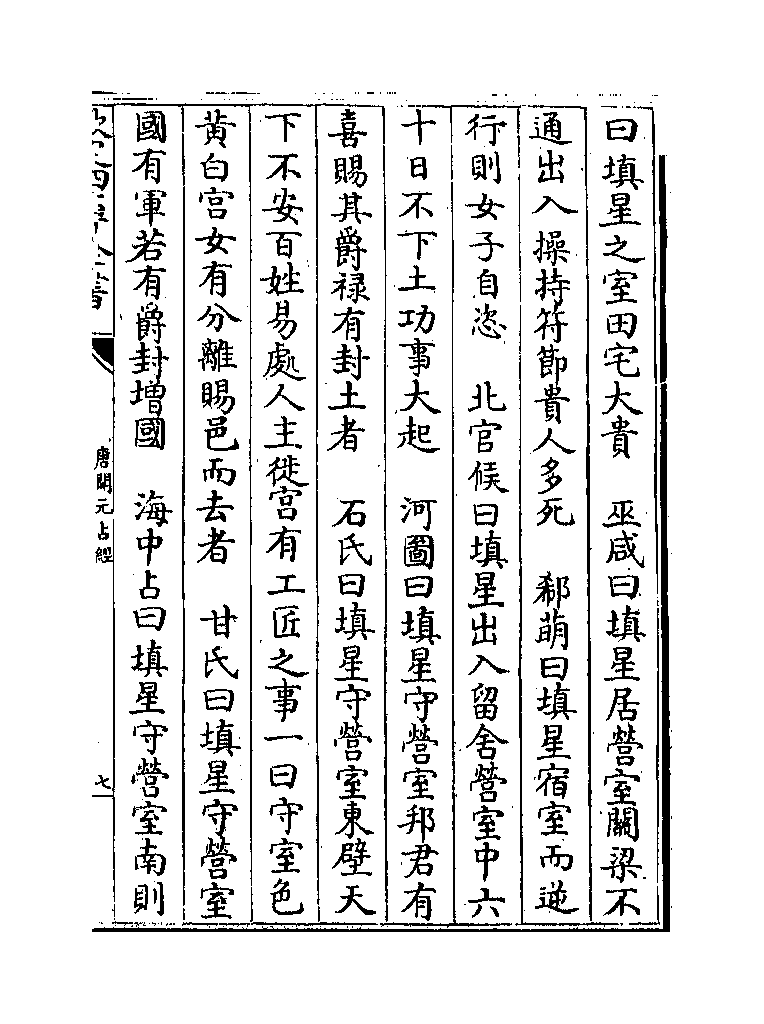 曰填星之室田宅大貴　巫咸曰填星居營室關梁不
通出入操持符節貴人多死　郗萌曰填星宿室而逆
行則女子自恣　北官候曰填星出入留舍營室中六
十日不下土功事大起　河圖曰填星守營室邦君有
喜賜其爵禄有封土者　石氏曰填星守營室東壁天
下不安百姓易處人主徙宫有工匠之事一曰守室色
黄白宫女有分離賜邑而去者　甘氏曰填星守營室
國有軍若有爵封增國　海中占曰填星守營室南則
唐開元占經
七